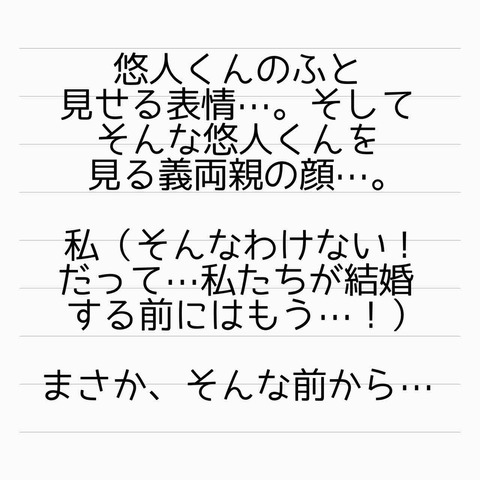 悠人くんのふと
見せる表情…。そして
そんな悠人くんを
見る義両親の顔…。
私（そんなわけない！
だって…私たちが結婚
する前にはもう…！）
まさか、そんな前から…